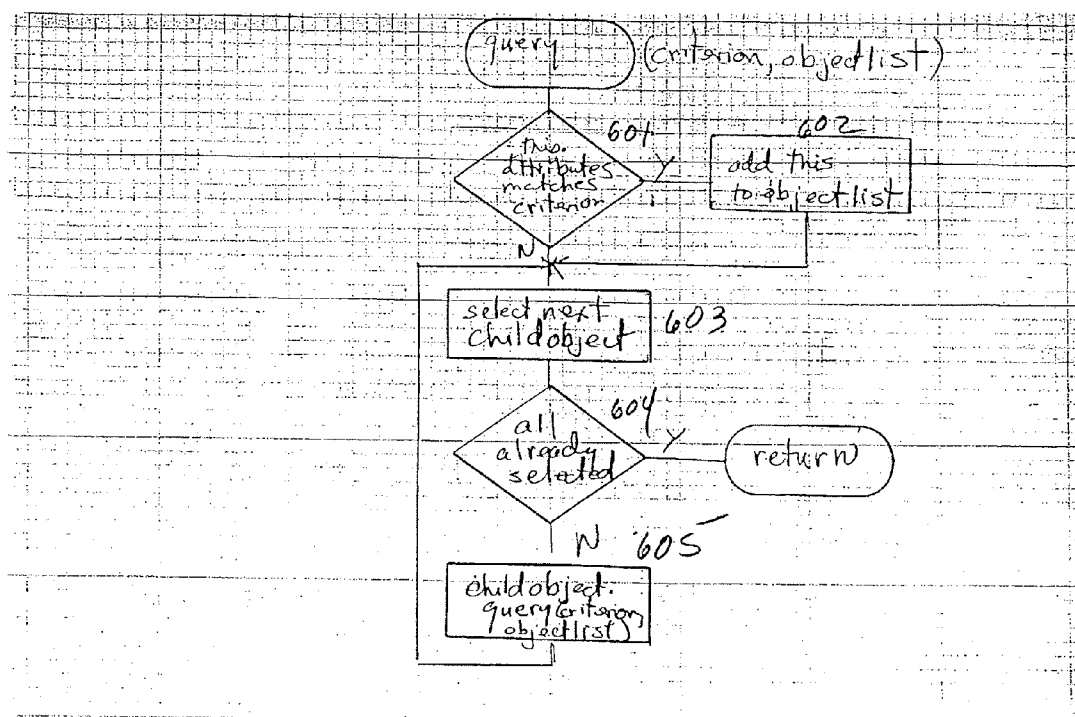 query (criterion, objectlist)
601
this.
attributes
matches
criterion
Y
602
add this
to objectlist
N
select next
childobject
603
604
all
already
selected
Y
return
N
605
childobject.
query(criterion,
objectlist)